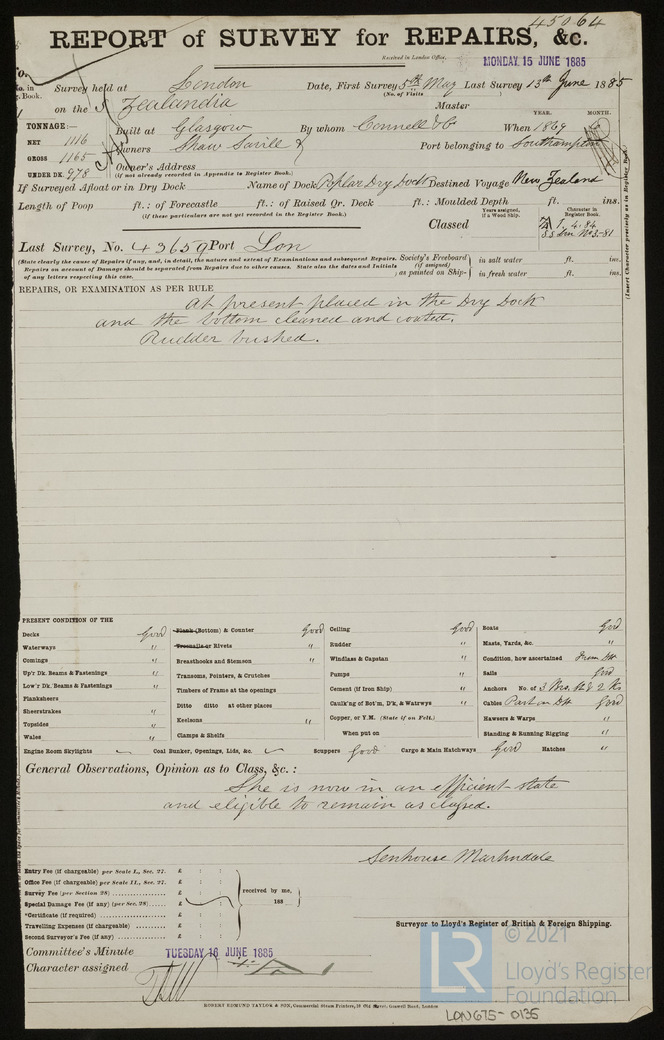 45064
REPORT of SURVEY for REPAIRS, &c.
Received in London Office,
MONDAY. 15 JUNE 1885
No. in Survey held at London Date, First Survey 5th May Last Survey 13th June 1885
Reg. Book. (No. of Visits )
on the S Zealandia Master
TONNAGE:— YEAR. MONTH.
NET 1116 Built at Glasgow By whom Connell & Co When 1869 6
GROSS 1165 Owners Shaw Savill & Port belonging to Southampton
UNDER DK. 978 Owner's Address
(if not already recorded in Appendix to Register Book.)
If Surveyed Afloat or in Dry Dock Name of Dock Poplar Dry Dock Destined Voyage New Zealand
Length of Poop ft.: of Forecastle ft.: of Raised Qr. Deck ft.: Moulded Depth ft. ins.
(If these particulars are not yet recorded in the Register Book.)
Classed
Years assigned, if a Wood Ship.
Character in Register Book.
4.84
SS Lon No 3-81
(Insert Character precisely as in Register Book.)
Last Survey, No. 43659 Port Lon
(State clearly the cause of Repairs if any, and, in detail, the nature and extent of Examinations and subsequent Repairs.
Repairs on account of Damage should be separated from Repairs due to other causes. State also the dates and Initials
of any letters respecting this case.
Society's Freeboard (if assigned) as painted on Ship-
in salt water ft. ins.
in fresh water ft. ins.
REPAIRS, OR EXAMINATION AS PER RULE
At present placed in the Dry Dock
and the bottom cleaned and coated.
Rudder bushed.
PRESENT CONDITION OF THE
Decks Good
Waterways "
Comings "
Up'r Dk. Beams & Fastenings "
Low'r Dk. Beams & Fastenings "
Planksheers
Sheerstrakes "
Topsides "
Wales "
Plank (Bottom) & Counter Good
Treenails or Rivets "
Breasthooks and Stemson "
Transoms, Pointers, & Crutches
Timbers of Frame at the openings
Ditto ditto at other places
Keelsons "
Clamps & Shelfs
Ceiling Good
Rudder "
Windlass & Capstan "
Pumps "
Cement (if Iron Ship) "
Caulk'ng of Bot'm, D'k, & Watrwys "
Copper, or Y.M. (State if on Felt.)
When put on
Boats Good
Masts, Yards, &c. "
Condition, how ascertained From Dk
Sails Good
Anchors No. of 3 Brs. & 2 Ks
Cables Part on Dk Good
Hawsers & Warps "
Standing & Running Rigging "
Engine Room Skylights Coal Bunker, Openings, Lids, &c. Scuppers Good Cargo & Main Hatchways Good Hatches "
General Observations, Opinion as to Class, &c.:
She is now in an efficient state
and eligible to remain as classed.
Senhouse Martindale
Entry Fee (if chargeable) per Scale I., Sec. 27. £ : :
Office Fee (if chargeable) per Scale II., Sec. 27. £ : :
Survey Fee (per Section 28) £ : :
Special Damage Fee (if any) (per Sec. 28) £ : :
*Certificate (if required) £ : :
Travelling Expenses (if chargeable) £ : :
Second Surveyor's Fee (if any) £ : :
received by me,
188
Surveyor to Lloyd's Register of British & Foreign Shipping.
Committee's Minute TUESDAY 16 JUNE 1885
Character assigned
ROBERT EDMUND TAYLOR & SON, Commercial Steam Printers, 19 Old Street, Goswell Road, London
LR
© 2021
Lloyd's Register
Foundation
LON675-0135